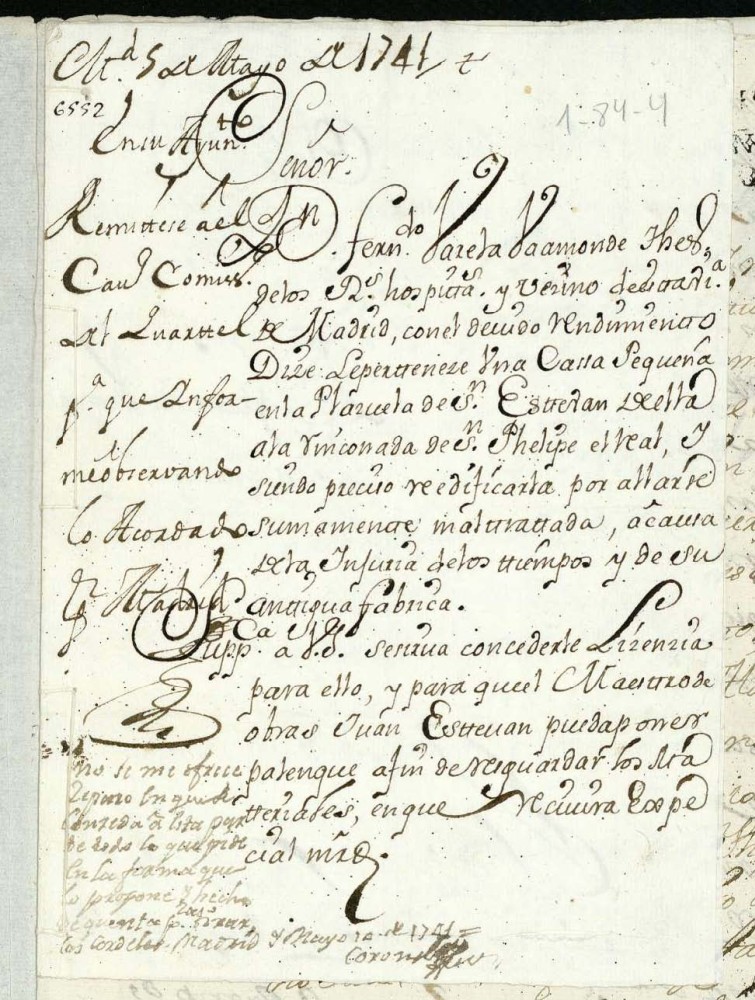 M.d 5 de Mayo de 1741
6552
1-84-4
En su Ayun.to
Señor.
Remittese a el
Cau.o Comiss.
del Quarttel
p.a que Infor-
me observando
lo Acordado
p.r Madrid
Dn. Fern.do Varela Vaamonde Thes.o
de los R.s hospitta.s y Vezino de estta Vi.a
de Madrid, con el devido rendimiento
Dize Lepertteneze Vna Cassa Pequeña
en la Plazuela de S.n Estteban de esta
a la rinconada de S.n Phelipe el real, y
siendo preciso reedificarla por allarse
sumamentte malttrattada, a causa
de la Injuria de los ttiempos y de su
antigua fabrica.
Supp.ca a V.S. se sirva concederle Lizenzia
para ello, y para que el Maesttro de
obras Juan Estteuan pueda poner
palenque a fin de resguardar los Ma
tteriales, en que reciuira Expe
cial mrd.
No se me ofrece
reparo en que se
conzeda a esta par
te todo lo que pide
en la forma que
lo propone y hecha
de quenta p.a tirar
los Cordeles. Madrid y Mayo 10 de 1741=